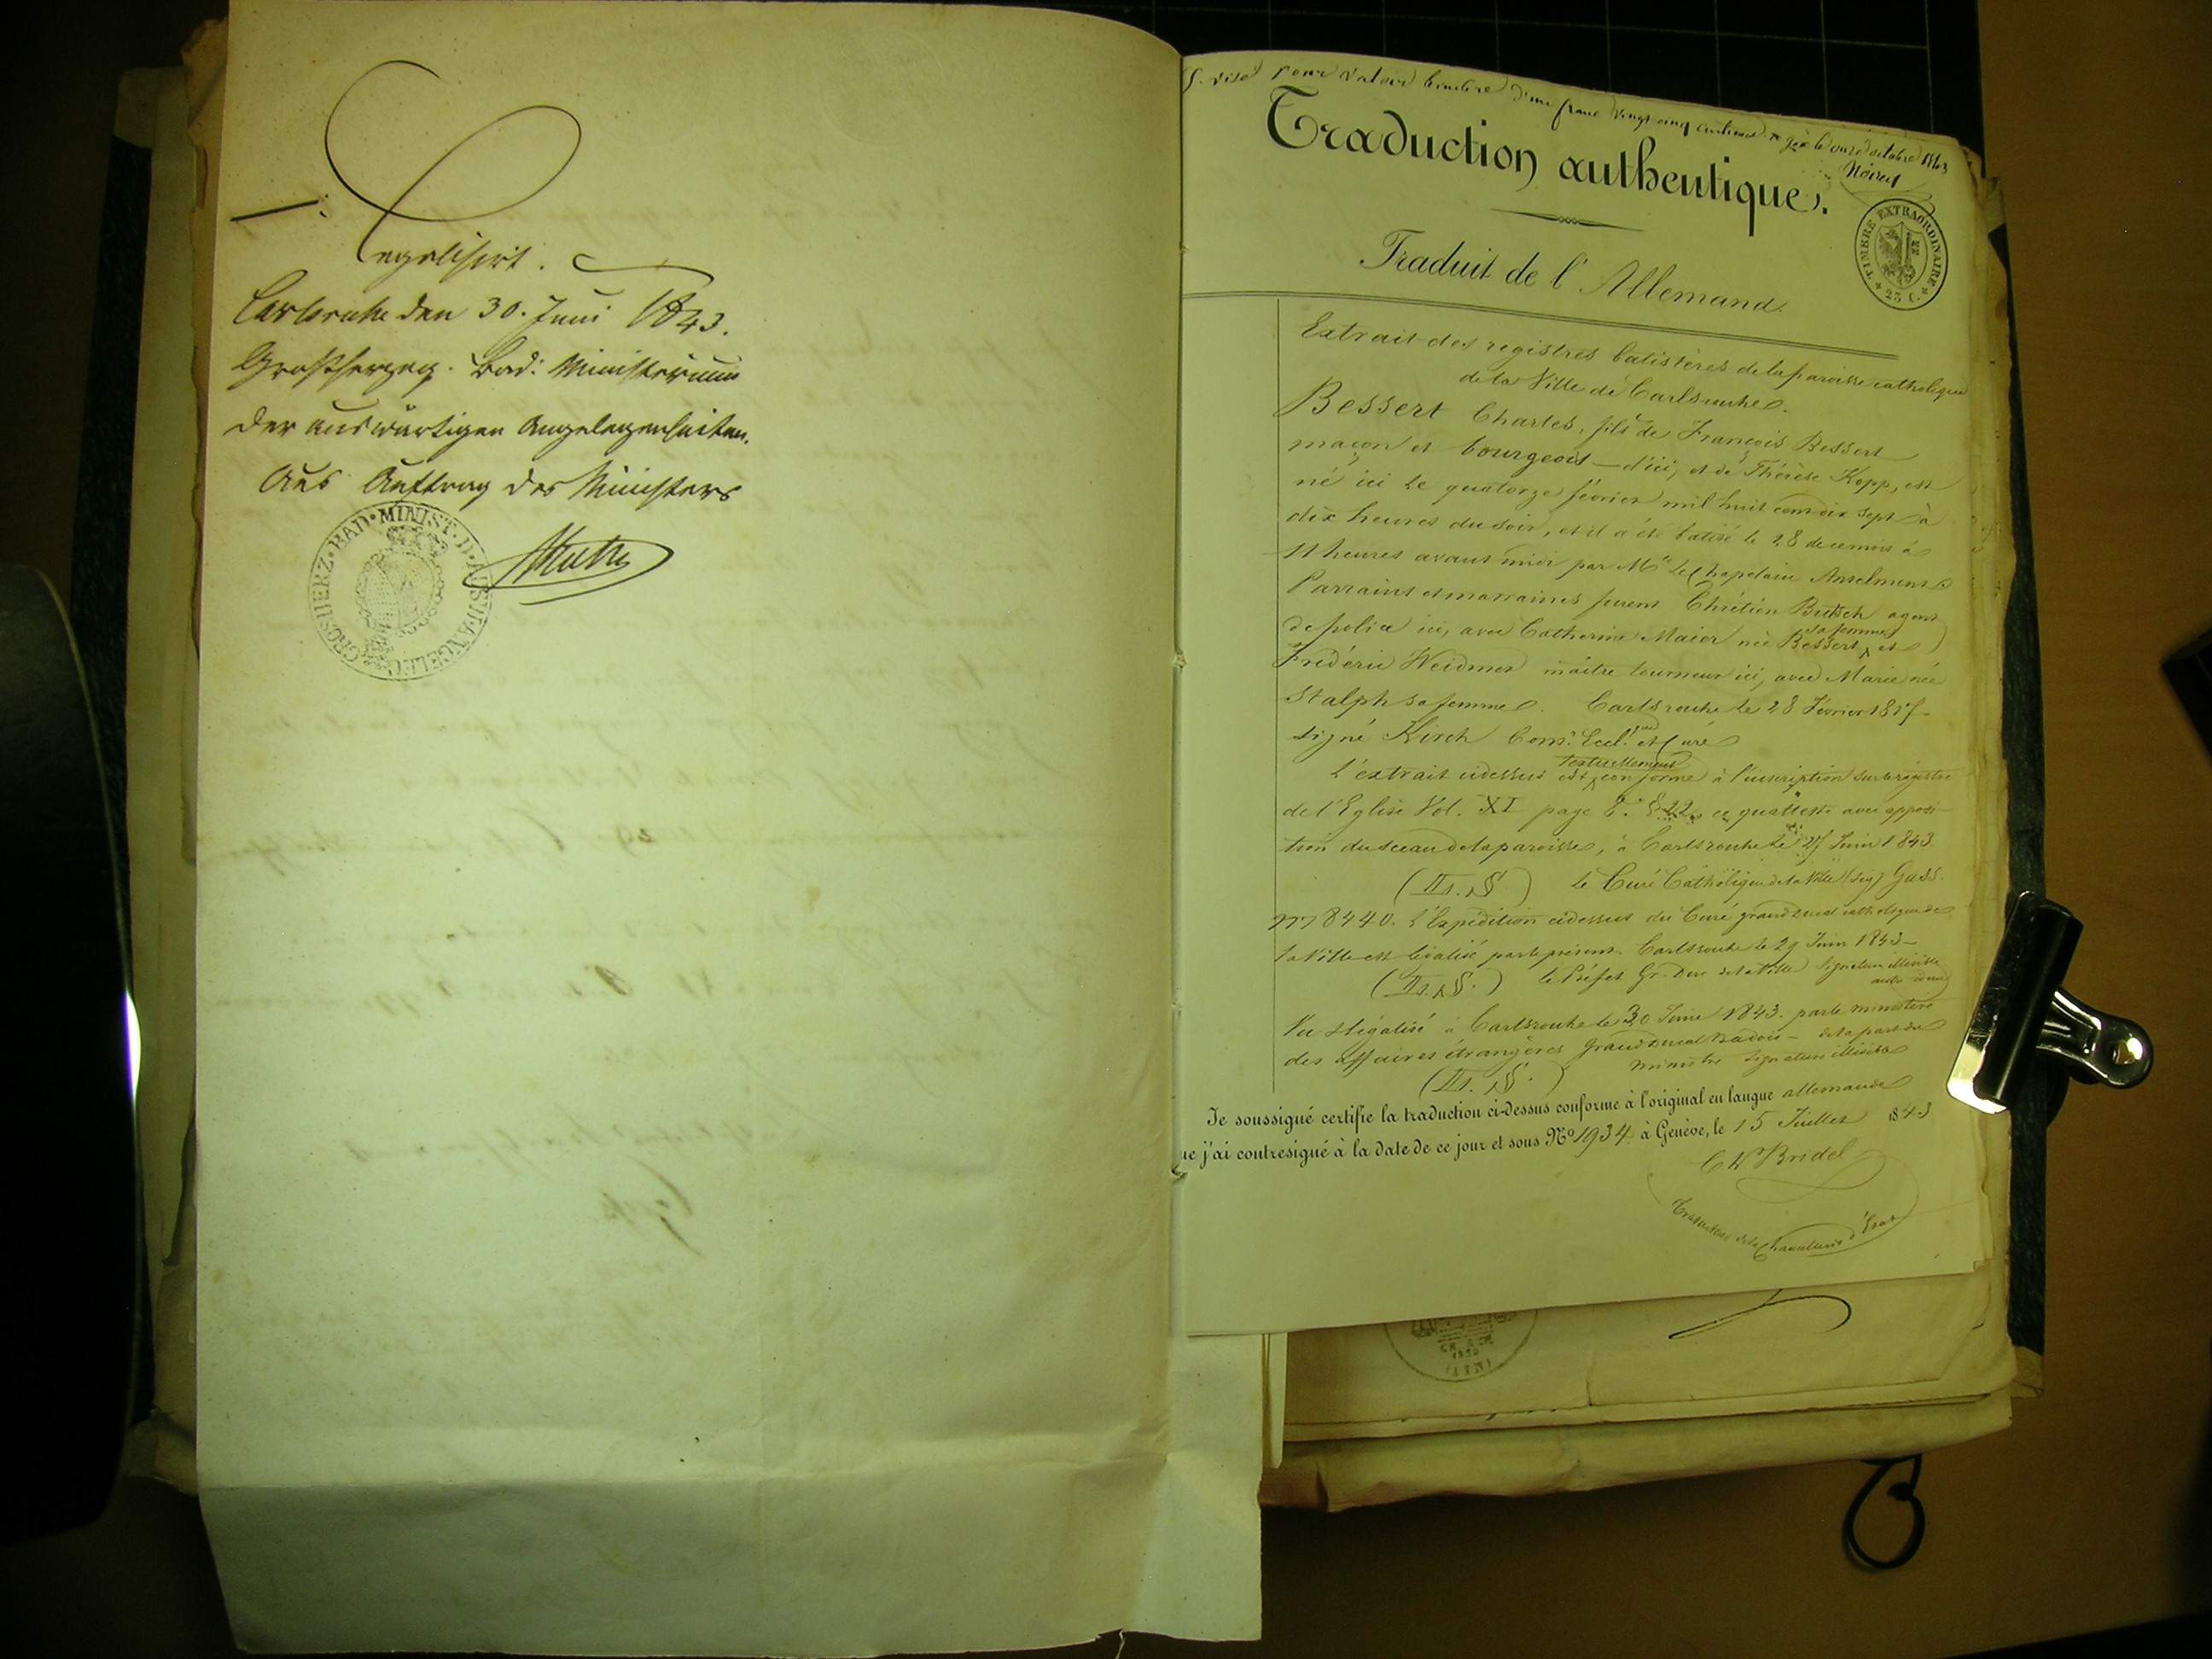 Legalisirt.
Carlsruhe den 30. Juni 1843.
Großherzog. Bad: Ministerium
der auswärtigen Angelegenheiten.
Aus Auftrag des Ministers
GROSHERZ. BAD. MINIST. D. AUSW. ANGELEG.
visé pour valoir timbre d'un franc vingt cinq centimes à Gex le onze octobre 1843
Traduction authentique.
TIMBRE EXTRAORDINAIRE
25 C.
Traduit de l'Allemand.
Extrait des registres batistères de la paroisse catholique
de la Ville de Carlsruhe.
Bessert Charles, fils de François Bessert
maçon et bourgeois d'ici, et de Thérèse Kopp, est
né ici le quatorze février mil huit cent dix sept à
dix heures du soir, et il a été batisé le 28 de ce mois à
11 heures avant midi par Mr le Chapelain Anselment
Parrains et marraines furent Chrétien Butsch agent
de police ici, avec Catherine Maier née Bessert sa femme et
Frédéric Weidmer maître tourneur ici, avec Marie née
Stalph sa femme. Carlsrouhe le 28 Février 1817
signé Kirch Com. Eccl. et Curé
L'extrait cidessus est textuellement conforme à l'inscription sur le registre
de l'Eglise Vol. XI page 8. § 22 ce qu'atteste avec apposi
tion du sceau de la paroisse, à Carlsrouhe le 27 Juin 1843.
le Curé Catholique de la Ville (sig) Gass.
8440. L'Expédition cidessus du Curé grand ducal catholique de
la Ville est légalisé par le présent. Carlsrouhe le 29 Juin 1843
le Préfet Gr. Duc de la Ville signature illisible
Vu et légalisé à Carlsrouhe le 30 Juin 1843. par le ministère
des affaires étrangères Grand Ducal Badois - de la part du
ministre signature illisible
Je soussigné certifie la traduction ci-dessus conforme à l'original en langue allemande
que j'ai contresigné à la date de ce jour et sous No 1934 à Genève, le 15 Juillet 1843
Bridel
Traducteur de la Chancellerie d'État